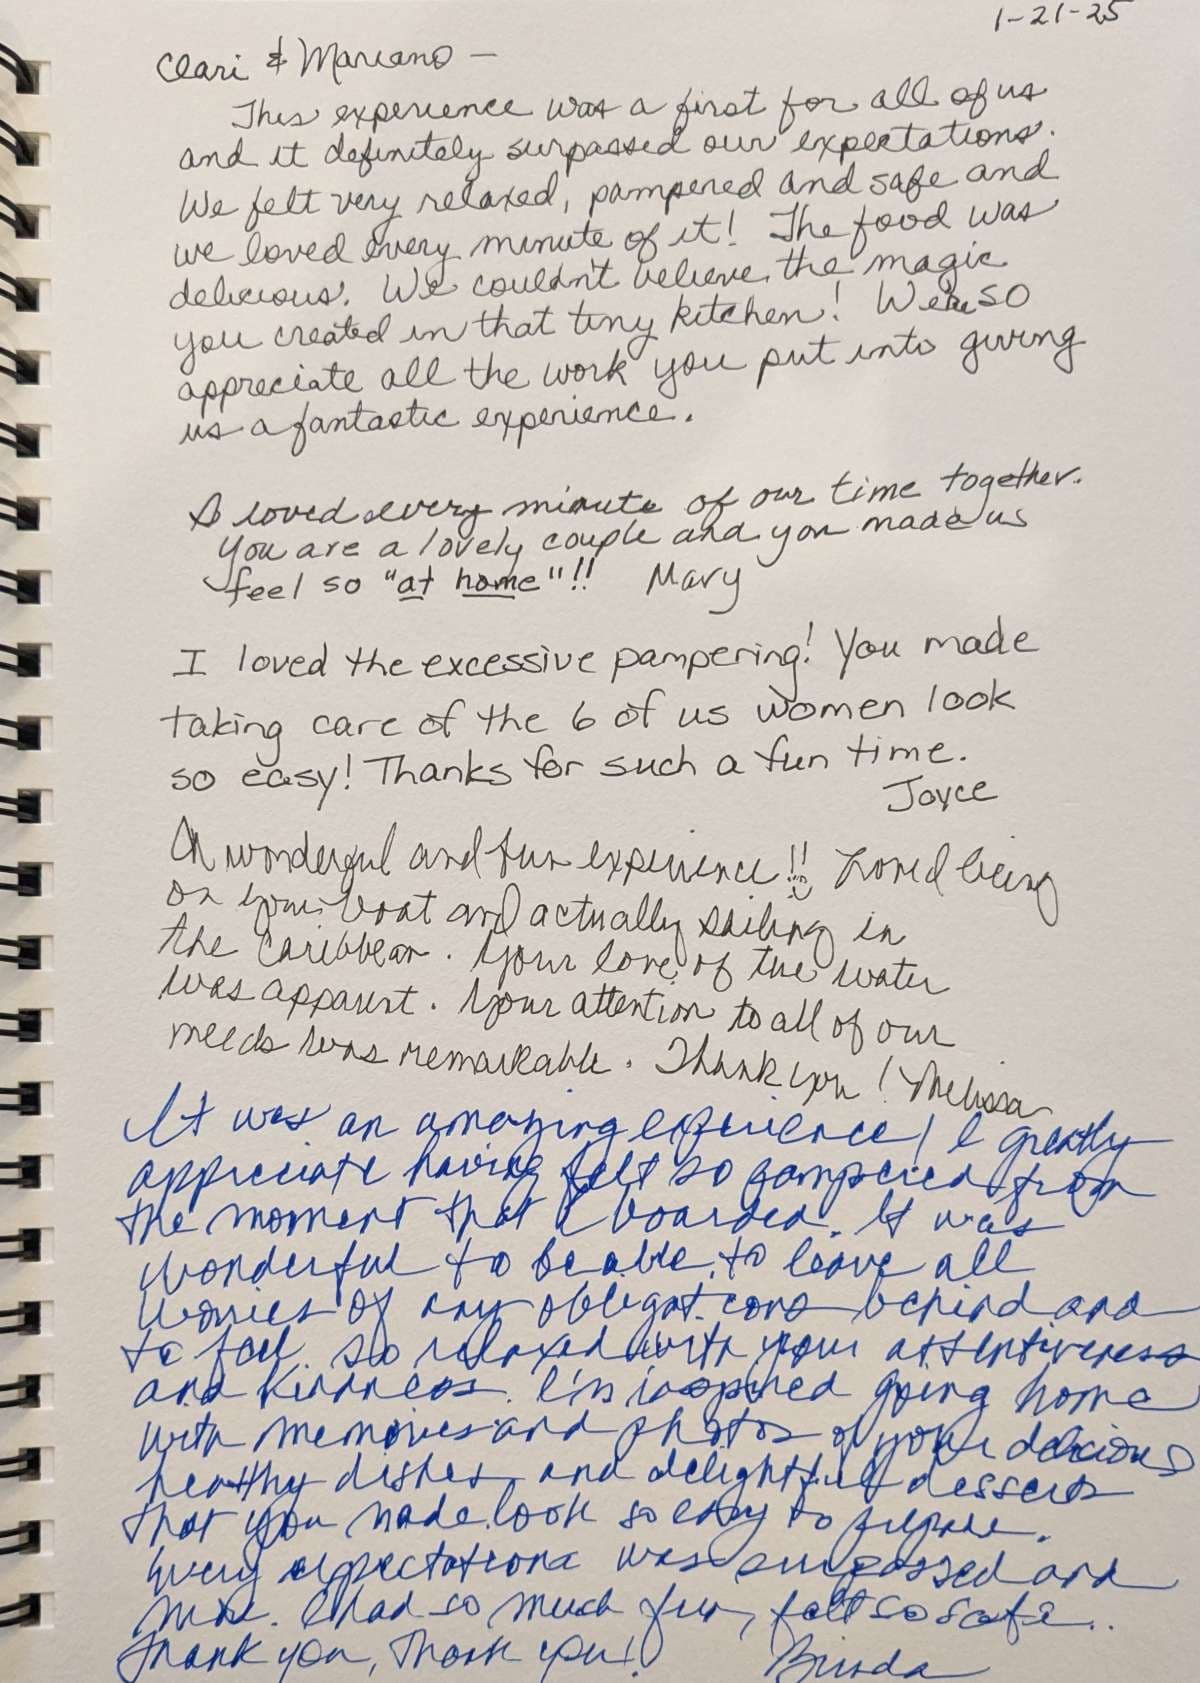 1-21-25
Clari & Mariano —
This experience was a first for all of us
and it definitely surpassed our expectations.
We felt very relaxed, pampered and safe and
we loved every minute of it! The food was
delicious. We couldn't believe the magic
you created in that tiny kitchen! We so
appreciate all the work you put into giving
us a fantastic experience.
I loved every minute of our time together.
You are a lovely couple and you made us
feel so "at home"!! Mary
I loved the excessive pampering! You made
taking care of the 6 of us women look
so easy! Thanks for such a fun time.
Joyce
A wonderful and fun experience!! Loved being
on your boat and actually sailing in
the Caribbean. Your love of the water
was apparent. Your attention to all of our
needs was remarkable. Thank you! Melissa
It was an amazing experience! I greatly
appreciate having felt so pampered from
the moment that I boarded. It was
wonderful to be able to leave all
worries of any obligations behind and
to feel so relaxed with your attentiveness
and kindness. I'm inspired going home
with memories and photos of your delicious
healthy dishes and delightful desserts
that you made look so easy to prepare.
Every expectation was surpassed and
more. I had so much fun, felt so safe..
Thank you, Thank you!